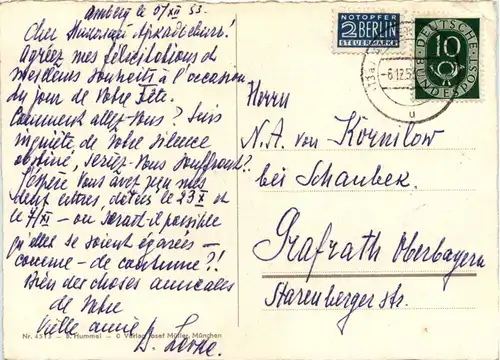 Amberg le 07/XII 53.
Cher Николай Аркадьевич!
Agréez mes félicitations et
meilleurs souhaits à l'occasion
du jour de Votre Fête.
Comment allez-Vous? Suis
inquiète de Votre silence
obstiné, seriez-Vous souffrant?
J'espère Vous avez reçu mes
deux lettres, datées le 23 X et
le 7/XI – ou serait-il possible
qu'elles se soient égarées –
comme - de coutume?!
Bien des choses amicales
de Votre
vieille amie
Nr. 4513 – B. Hummel – © Verlag Josef Müller, München
NOTOPFER
2 BERLIN
STEUERMARKE
DEUTSCHE
BUNDESPOST
10
-8.12.53
Herrn
N.A. von Körnilow
bei Schaubek.
Grafrath Oberbayern
Starenberger str.